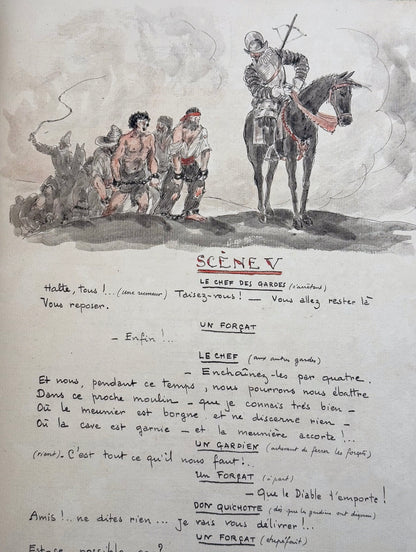 SCÈNE V
LE CHEF DES GARDES (s'arrêtant)
Halte, tous !... (une rumeur) Taisez-vous ! — Vous allez rester là
Vous reposer.
UN FORÇAT
— Enfin !...
LE CHEF (aux autres gardes)
— Enchaînez-les par quatre.
Et nous, pendant ce temps, nous pourrons nous ébattre
Dans ce proche moulin — que je connais très bien —
Où le meunier est borgne et ne discerne rien —
Où la cave est garnie — et la meunière accorte !...
UN GARDIEN (achevant de ferrer les forçats)
(riant). C'est tout ce qu'il nous faut !...
UN FORÇAT (à part)
— Que le Diable t'emporte !
DON QUICHOTTE (dès que les gardiens ont disparu)
Amis !.. ne dites rien ... je vais vous délivrer !..
UN FORÇAT (stupéfait)
Est-ce possible